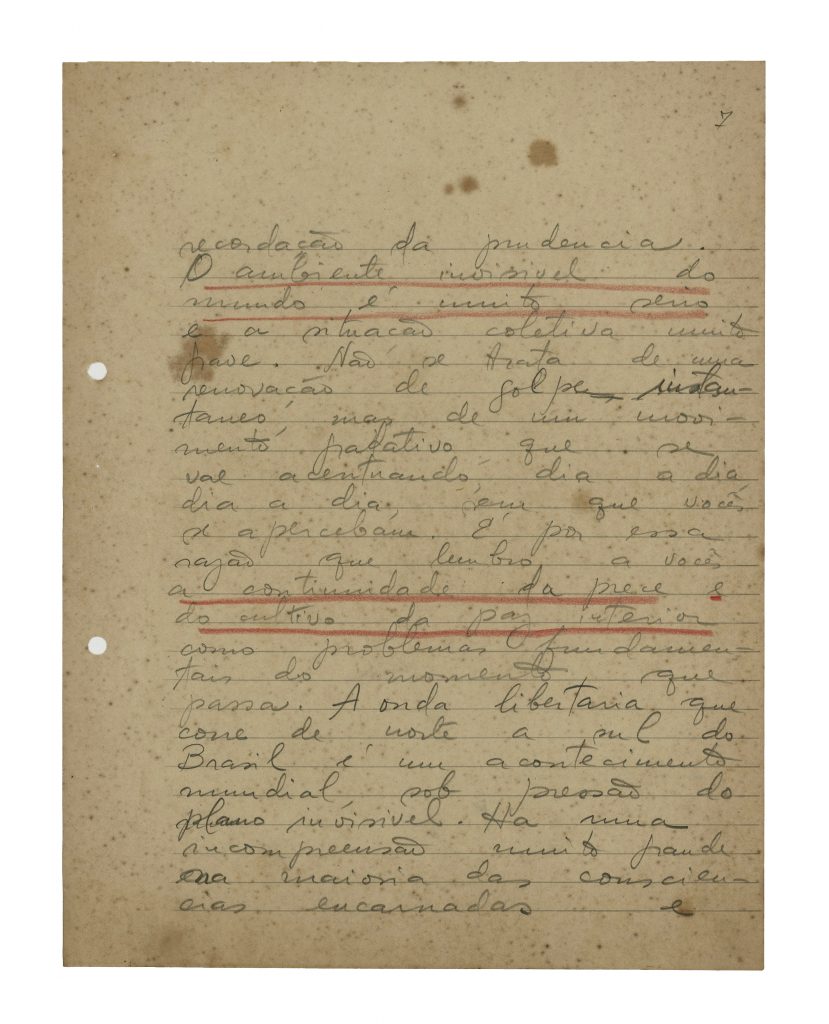 7
recordação da prudencia.
O ambiente invisivel do
mundo é muito serio
e a situação coletiva muito
grave. Não se trata de uma
renovação de golpe instan-
taneo, mas de um movi-
mento que se
vae acentuando, dia a dia,
dia a dia, sem que vocês
se apercebam. É por essa
razão que lembro a vocês
a continuidade da prece e
do cultivo da paz interior
como problemas fundamen-
tais do momento que
passa. A onda libertaria que
corre de norte a sul do
Brasil é um acontecimento
mundial sob pressão do
plano invisivel. Ha uma
incompreensão muito grande
na maioria das conscien-
cias encarnadas e